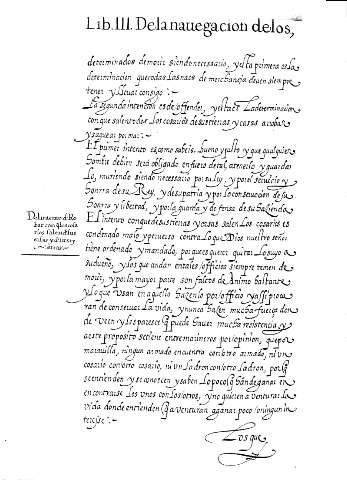 Lib. III. De la nauegacion de los,
determinados de morir siendo necessario, y esta primera es la
determinacion que todas las naos de merchançia deuen siempre
tener y lleuar consigo.
La segunda intention es de offender, y esta es La determinacion
con que salen todos los cosarios de sus tierras y casas a robar
y saquear por mar.
El primer intento es como sabeis bueno y sto y que qualquier
hombre de bien está obligado en fuero de tal a tenerlo y guardar
lo, muriendo siendo necessario por su ley, y por el seruicio y
honrra de su Rey, y de su patria y por la conseruacion de su
honrra y libertad, y por la guarda y defensa de su hazienda.
El intento con que de sus tierras y casas salen Los cosarios es
condenado malo y peruerso contra Lo que Dios nuestro señor
tiene ordenado y mandado, porque es querer quitar Lo suyo a
su dueño, y los que andan en tales officios siempre temen de
morir, y por la mayor parte son faltos de animo bastante
y lo que Usan en aquello hazenlo por officio y assi procu
ran de conseruar La vida, y nunca hazen mucha fuerça don
de Veen y les parece q puede hauer mucha resistencia y
a este proposito se tiene entre marineros por opinion, que por
marauilla, ningun armado encuentra con otro armado, ni Un
cosario con otro cosario, ni Un Ladron con otro Ladron, por q
se entienden y se conoscen y saben Lo poco q han de ganar en
encontrarse Los Unos con Los otros, y no quieren auenturar La
vida donde entienden q a venturan a ganar poco o ningun in
teresse.
Los que